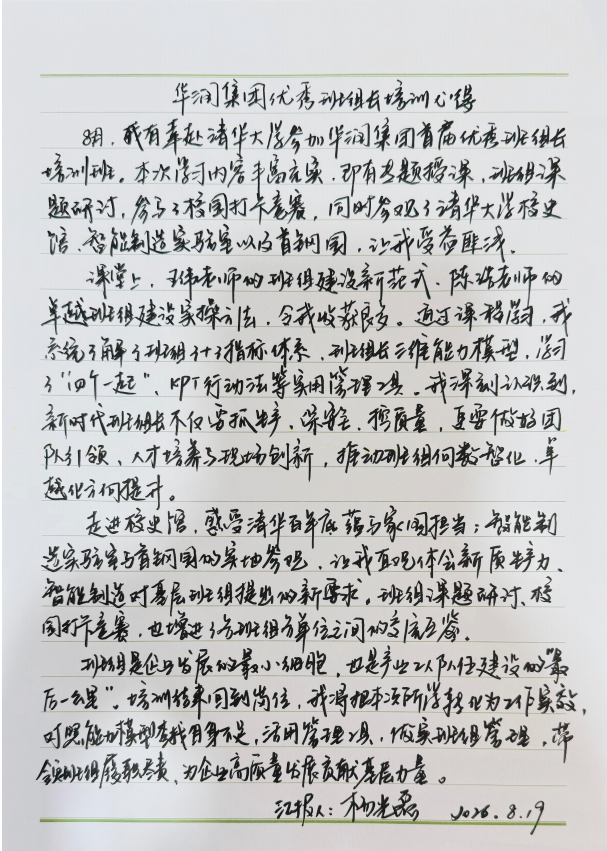 华润集团优秀班组长培训心得
8月,我有幸赴清华大学参加华润集团首届优秀班组长
培训班。本次学习内容丰富充实,即有专题授课,班组课
题研讨,参与了校园打卡竞赛,同时参观了清华大学校史
馆、智能制造实验室以及首钢园,让我受益匪浅。
课堂上,老师的班组建设新范式、陈老师的
卓越班组建设实操方法,令我收获良多。通过课程学习,我
系统了解了班组指标体系、班组长三维能力模型,学习
了"四个一起"、KPT行动法等实用管理工具。我深刻认识到,
新时代班组长不仅要抓生产、保安全、控质量,更要做好团
队引领、人才培养与现场创新,推动班组向数智化、卓
越化方向提升。
走进校史馆,感受清华百年底蕴与家国担当;智能制
造实验室与首钢园的实地参观,让我直观体会新质生产力、
智能制造对基层班组提出的新要求。班组课题研讨、校
园打卡竞赛,也增进了各班组各单位之间的交流互鉴。
班组是企业发展的最小细胞,也是产业工人队伍建设的"最
后一公里"。培训结束回到岗位,我将把本次所学转化为工作实效,
对照能力模型查找自身不足,活用管理工具,做实班组管理,带
领班组履职尽责,为企业高质量发展贡献基层力量。
汇报人:杨光磊 2026.8.19